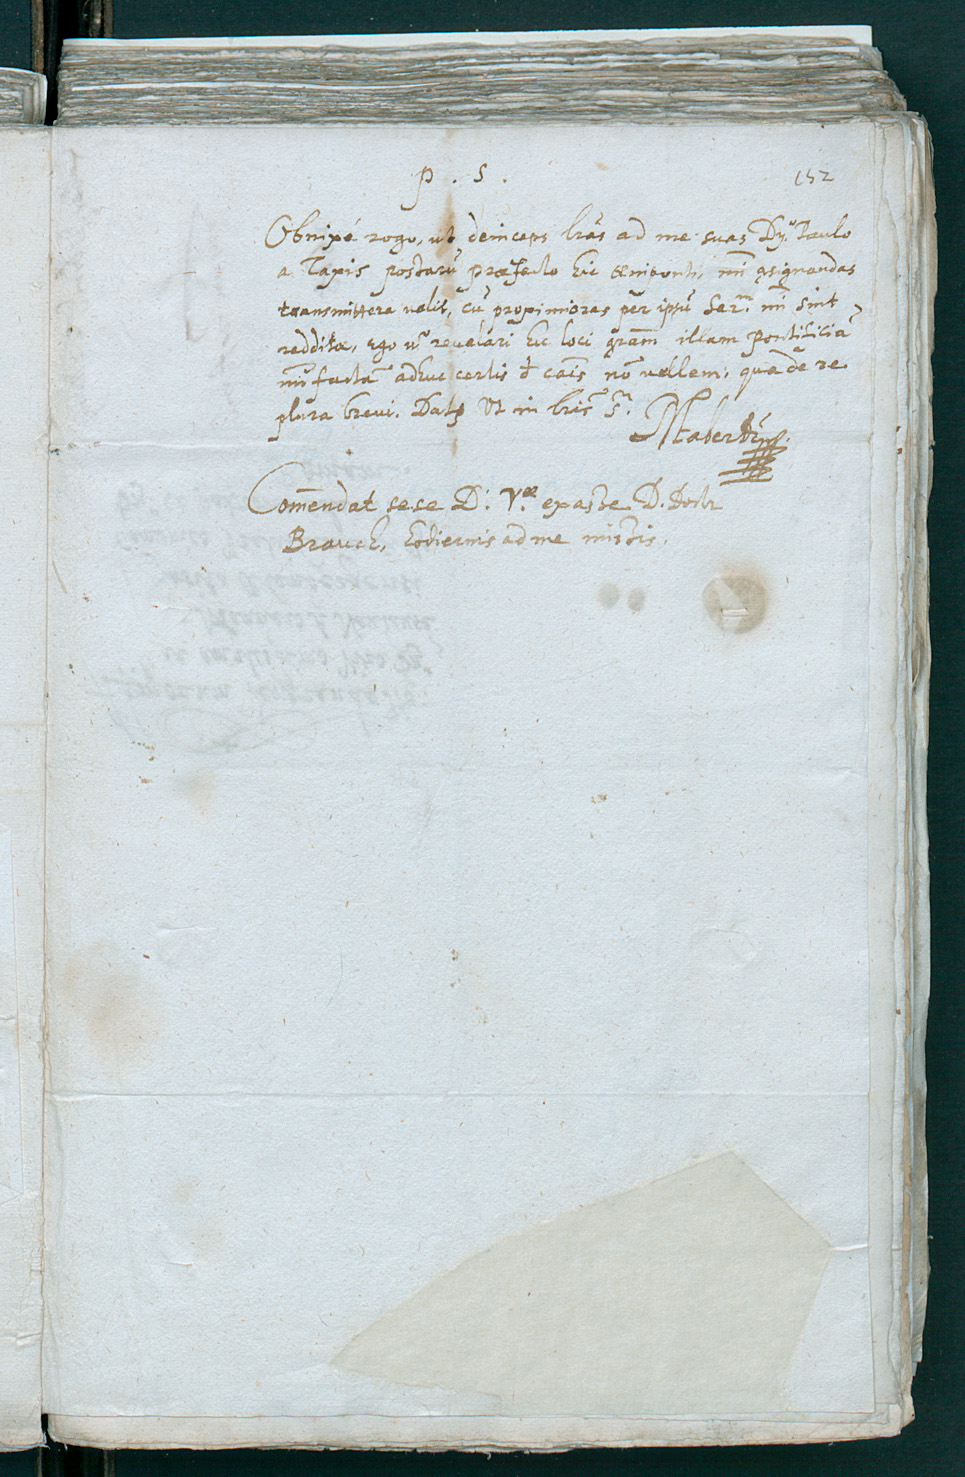 P . S .
152
Obnixè rogo, ut deinceps lr̃as ad me suas Dn̄o Paulo
a Taxis postarũ præfecto hic Œniponti, mihi ↄsignandas
transmittere velit, cũ propinniores per ipsũ Ser.mi sint
redditæ, ego n̄ revelari hic loci gr̃am illam Pontificiã
factã adhuc certis de cais nõ vellem, qua de re
plura brevi. Datꝭ Ut in lr̃is
Comẽndat sese D: Vræ D. Doctr
Brauch, hodiernis ad me missis.